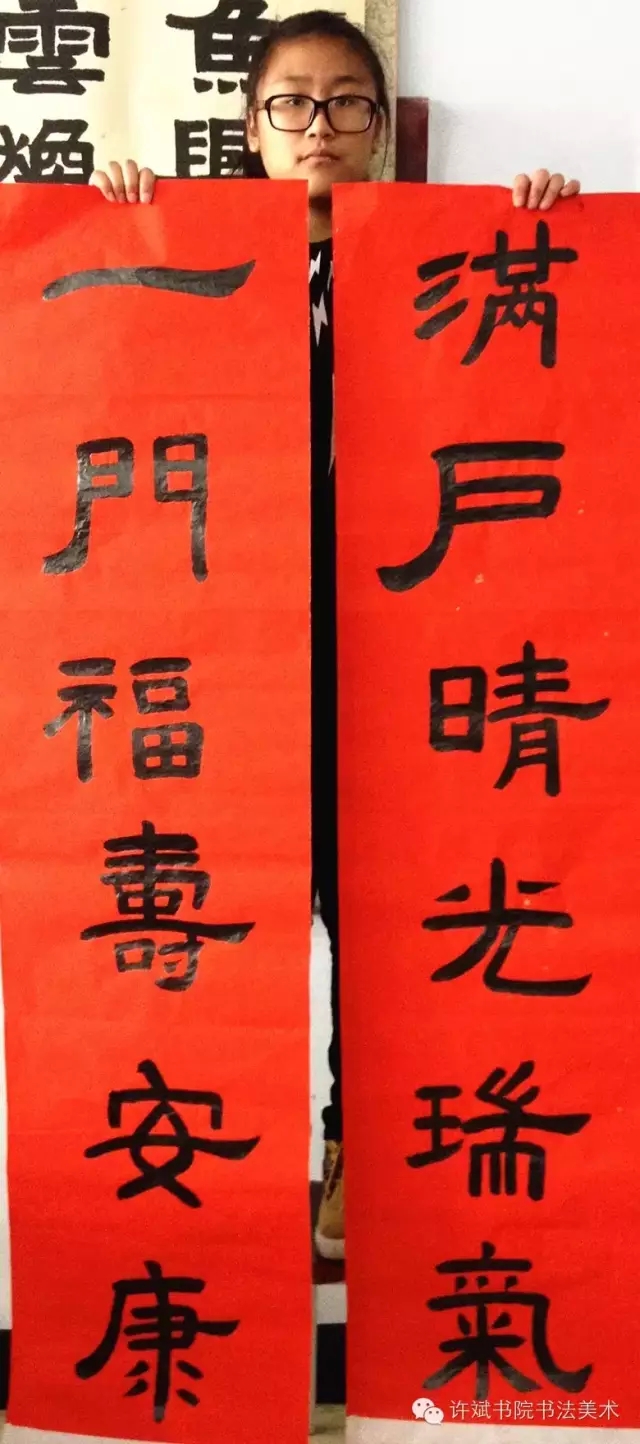 满户晴光瑞氣
一門福壽安康
雲
魚
许斌书院书法美术